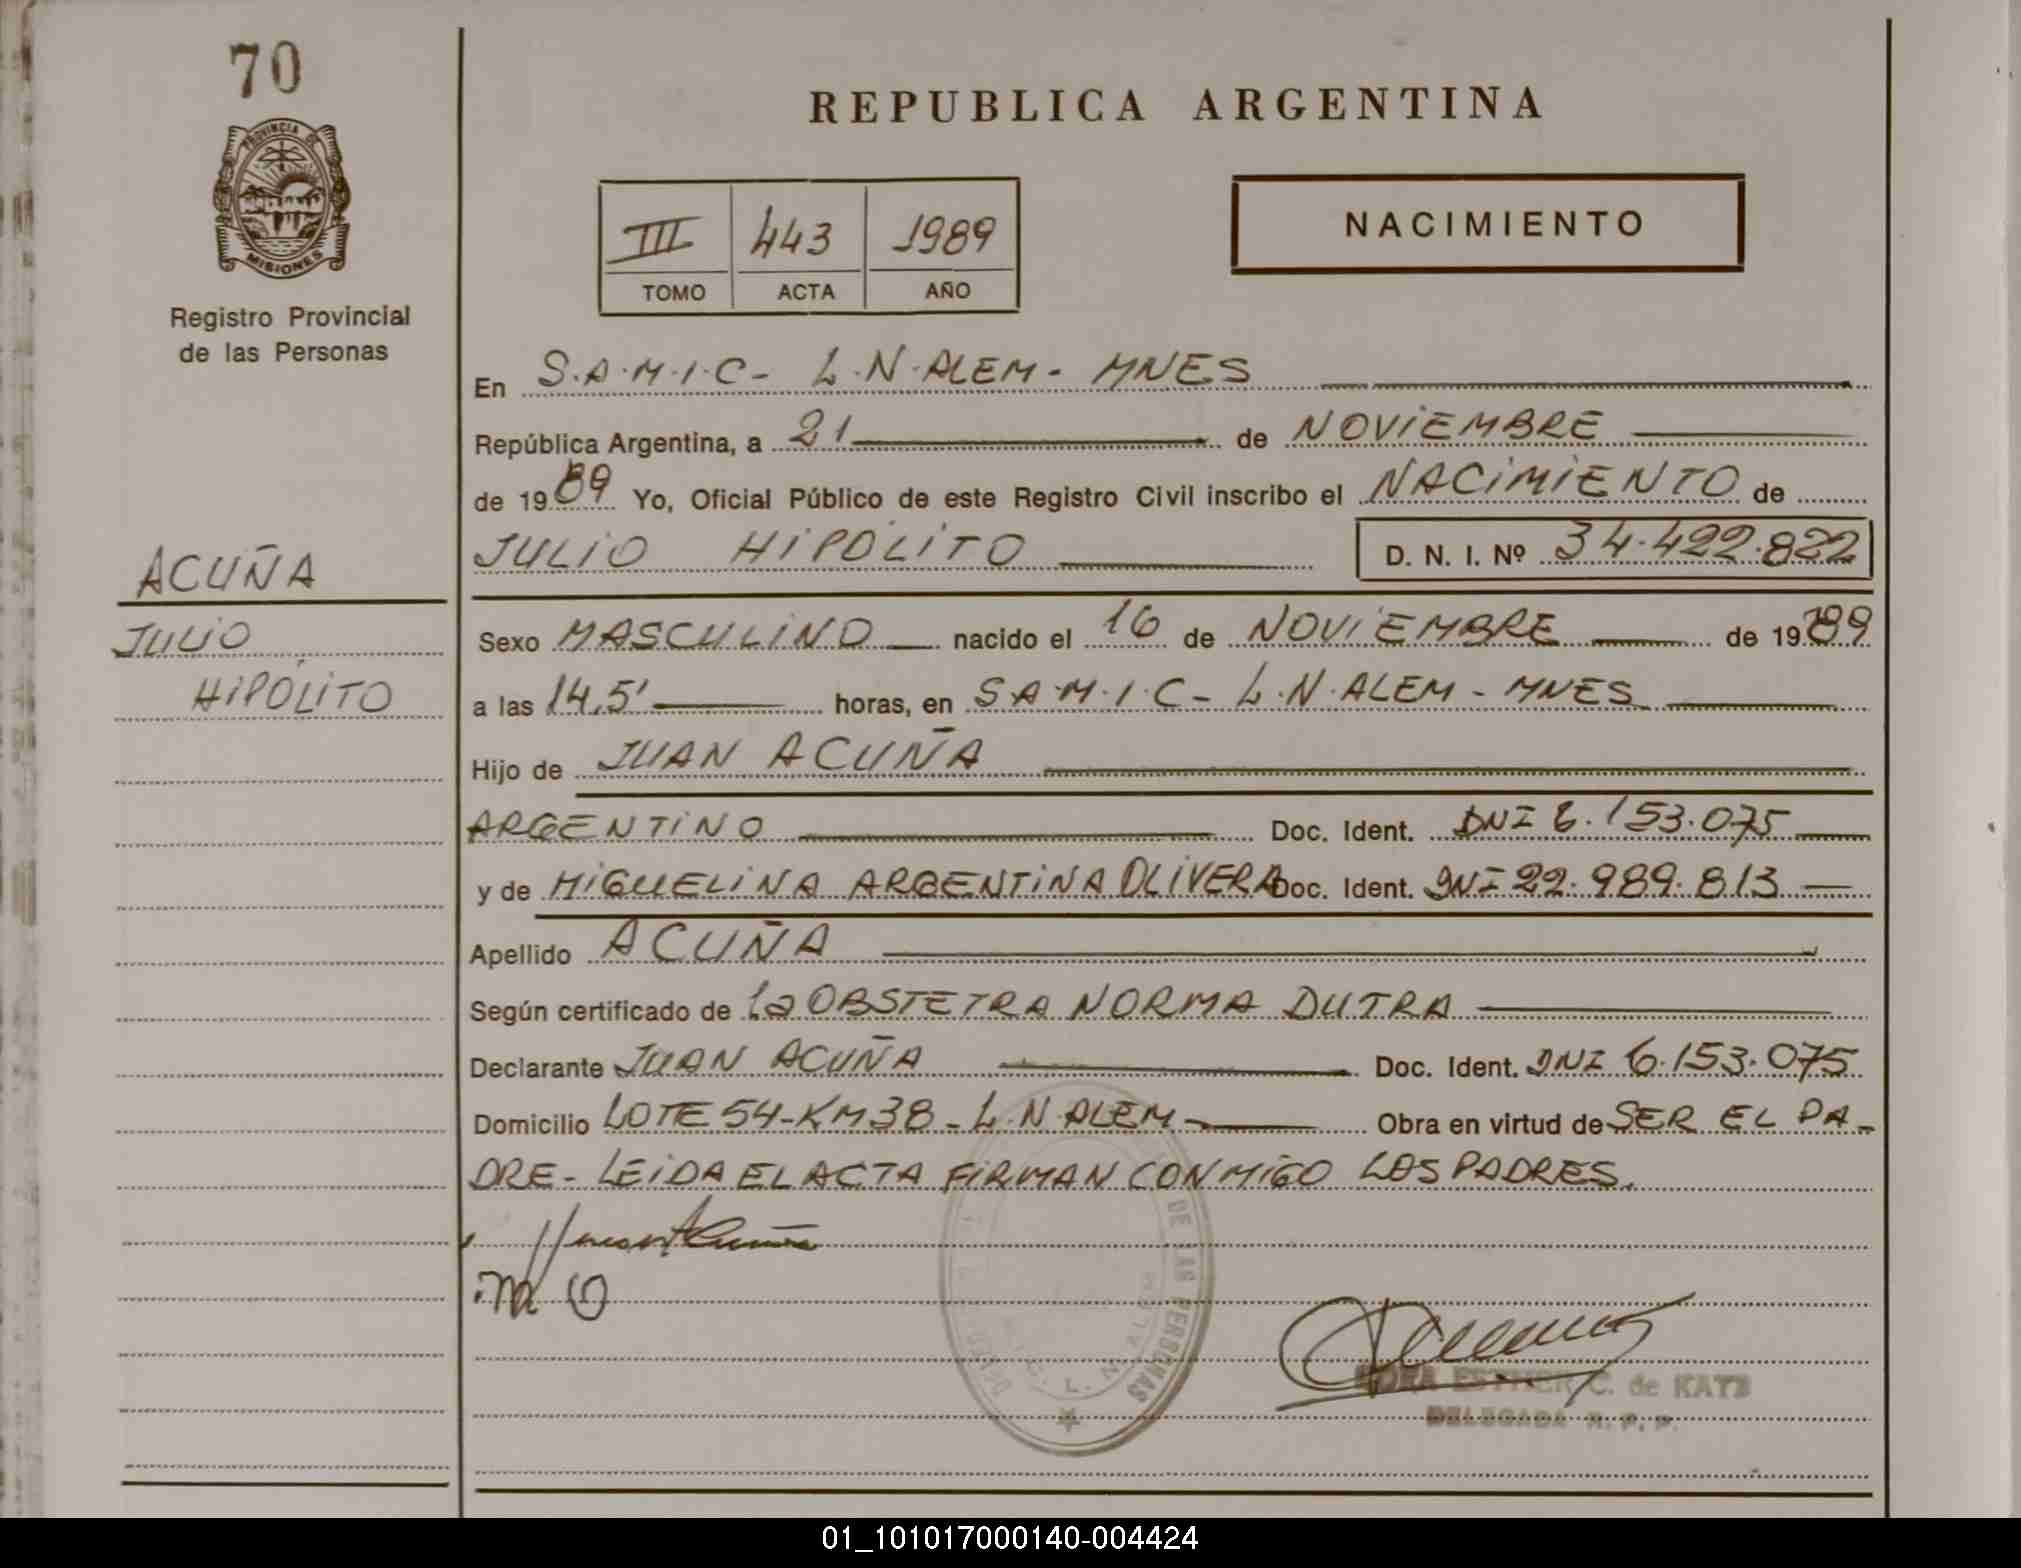 70
PROVINCIA DE
MISIONES
Registro Provincial
de las Personas
ACUÑA
JULIO
HIPÓLITO
REPUBLICA ARGENTINA
III 443 1989
TOMO ACTA AÑO
NACIMIENTO
En S.A.M.I.C- L.N.ALEM- MNES
República Argentina, a 21 de NOVIEMBRE
de 1989 Yo, Oficial Público de este Registro Civil inscribo el NACIMIENTO de
JULIO HIPÓLITO D. N. I. Nº 34.422.822
Sexo MASCULINO nacido el 16 de NOVIEMBRE de 1989
a las 14,5' horas, en S.A.M.I.C- L.N.ALEM - MNES
Hijo de JUAN ACUÑA
ARGENTINO Doc. Ident. DNI 6.153.075
y de MIGUELINA ARGENTINA OLIVERA Doc. Ident. DNI 22.989.813
Apellido ACUÑA
Según certificado de la OBSTETRA NORMA DUTRA
Declarante JUAN ACUÑA Doc. Ident. DNI 6.153.075
Domicilio LOTE 54-KM38-L.N ALEM Obra en virtud de SER EL PA-
DRE- LEIDA EL ACTA FIRMAN CONMIGO LOS PADRES.
M O
DE LAS PERSONAS
L. N. ALEM
ESTHER C. de KATZ
DELEGADA R. P. P.
01_101017000140-004424